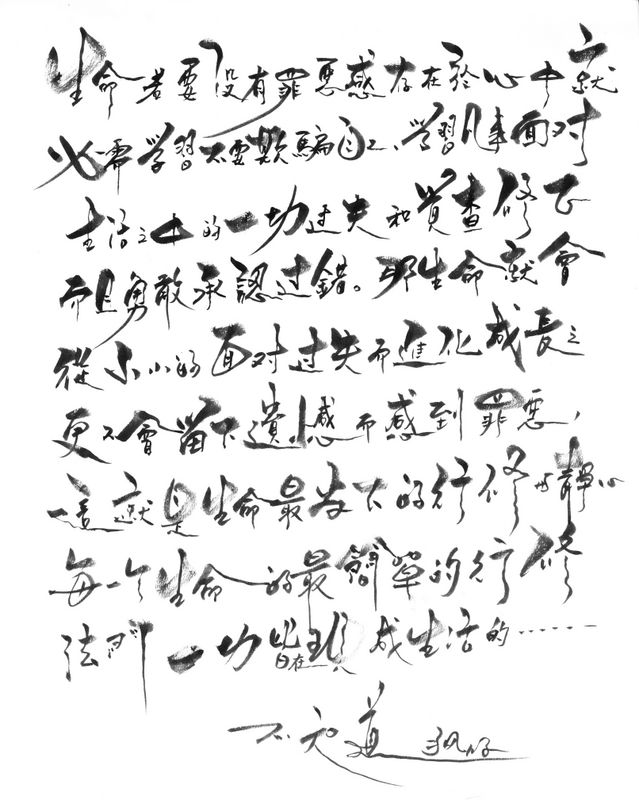 生命若要沒有罪惡感存在於心中就
必需學習不要欺騙自己、學習凡事面对
生活之中的一切过失和覺查修正
而且勇敢承認过錯。那生命就會
從小小的面对过失而進化成長之
更不會留下遺憾而感到罪惡，
這就是生命最當下的行修也靜心
每一个生命的最簡單的行修
法門一切皆在現成生活的……
不知道